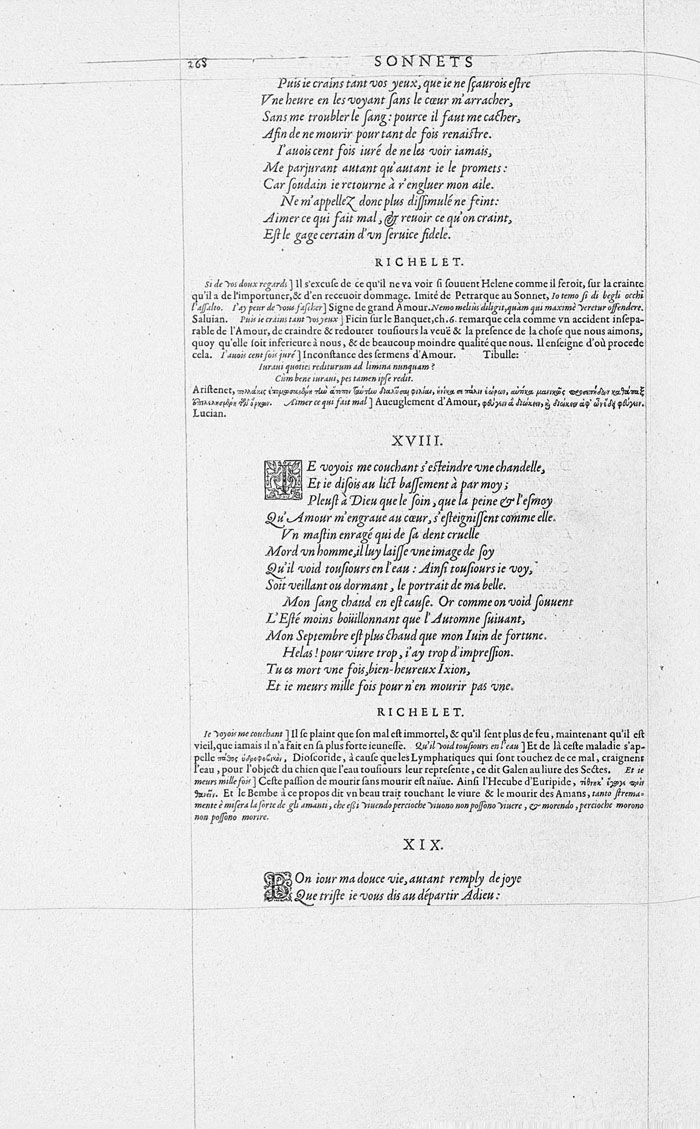 268 SONNETS
Puis ie crains tant vos yeux, que ie ne sçaurois estre
Vne heure en les voyant sans le cœur m'arracher,
Sans me troubler le sang: pource il faut me cacher,
Afin de ne mourir pour tant de fois renaistre.
I'auois cent fois iuré de ne les voir iamais,
Me parjurant autant qu'autant ie le promets:
Car soudain ie retourne à r'engluer mon aile.
Ne m'appellez donc plus dissimulé ne feint:
Aimer ce qui fait mal, & reuoir ce qu'on craint,
Est le gage certain d'vn seruice fidele.
RICHELET.
Si de vos doux regards ] Il s'excuse de ce qu'il ne va voir si souuent Helene comme il feroit, sur la crainte
qu'il a de l'importuner, & d'en receuoir dommage. Imité de Petrarque au Sonnet, Io temo si di begli occhi
l'assalto. I'ay peur de vous fascher ] Signe de grand Amour. Nemo meliùs diligit, quàm qui maximè veretur offendere.
Saluian. Puis ie crains tant vos yeux ] Ficin sur le Banquet, ch. 6. remarque cela comme vn accident insepa-
rable de l'Amour, de craindre & redouter tousiours la veuë & la presence de la chose que nous aimons,
quoy qu'elle soit inferieure à nous, & de beaucoup moindre qualité que nous. Il enseigne d'où procede
cela. I'auois cent fois iuré ] Inconstance des sermens d'Amour. Tibulle:
Iuraui quoties rediturum ad limina nunquam?
Cùm bene iuraui, pes tamen ipse redit.
Aristenet,
Aimer ce qui fait mal ] Aueuglement d'Amour,
Lucian.
XVIII.
IE voyois me couchant s'esteindre vne chandelle,
Et ie disois au lict bassement à par moy;
Pleust à Dieu que le soin, que la peine & l'esmoy
Qu'Amour m'engraue au cœur, s'esteignissent comme elle.
Vn mastin enragé qui de sa dent cruelle
Mord vn homme, il luy laisse vne image de soy
Qu'il void tousiours en l'eau: Ainsi tousiours ie voy,
Soit veillant ou dormant, le portrait de ma belle.
Mon sang chaud en est cause. Or comme on void souuent
L'Esté moins boüillonnant que l'Automne suiuant,
Mon Septembre est plus chaud que mon Iuin de fortune.
Helas! pour viure trop, i'ay trop d'impression.
Tu es mort vne fois, bien-heureux Ixion,
Et ie meurs mille fois pour n'en mourir pas vne.
RICHELET.
Ie voyois me couchant ] Il se plaint que son mal est immortel, & qu'il sent plus de feu, maintenant qu'il est
vieil, que iamais il n'a fait en sa plus forte ieunesse. Qu'il void tousiours en l'eau ] Et de là ceste maladie s'ap-
pelle Dioscoride, à cause que les Lymphatiques qui sont touchez de ce mal, craignent
l'eau, pour l'object du chien que l'eau tousiours leur represente, ce dit Galen au liure des Sectes. Et ie
meurs mille fois ] Ceste passion de mourir sans mourir est naïue. Ainsi l'Hecube d'Euripide,
Et le Bembe à ce propos dit vn beau trait touchant le viure & le mourir des Amans, tanto strema-
mente è misera la sorte de gli amanti, che essi viuendo percioche viuono non possono viuere, & morendo, percioche morono
non possono morire.
XIX.
BOn iour ma douce vie, autant remply de joye
Que triste ie vous dis au départir Adieu: